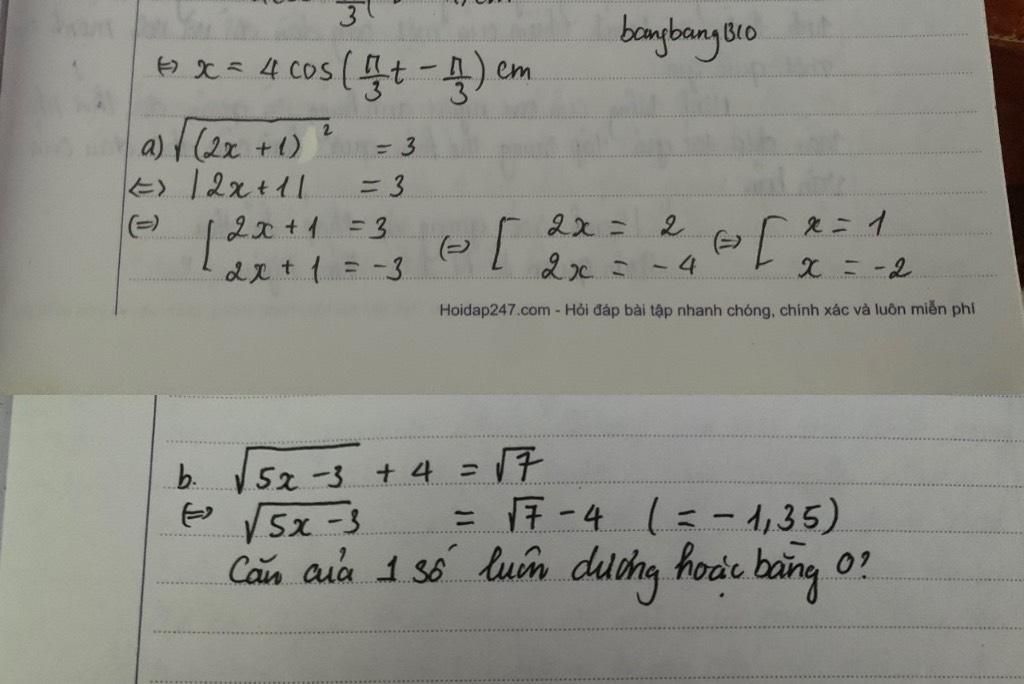 bangbangB10
⇔ x = 4 cos(π/3 t - π/3) cm
a) √(2x + 1)² = 3
⇔ |2x + 1| = 3
⇔ [ 2x + 1 = 3 ⇔ [ 2x = 2 ⇔ [ x = 1
2x + 1 = -3 2x = -4 x = -2
Hoidap247.com - Hỏi đáp bài tập nhanh chóng, chính xác và luôn miễn phí
b. √5x - 3 + 4 = √7
⇔ √5x - 3 = √7 - 4 ( = - 1,35)
Căn của 1 số luôn dương hoặc bằng 0?